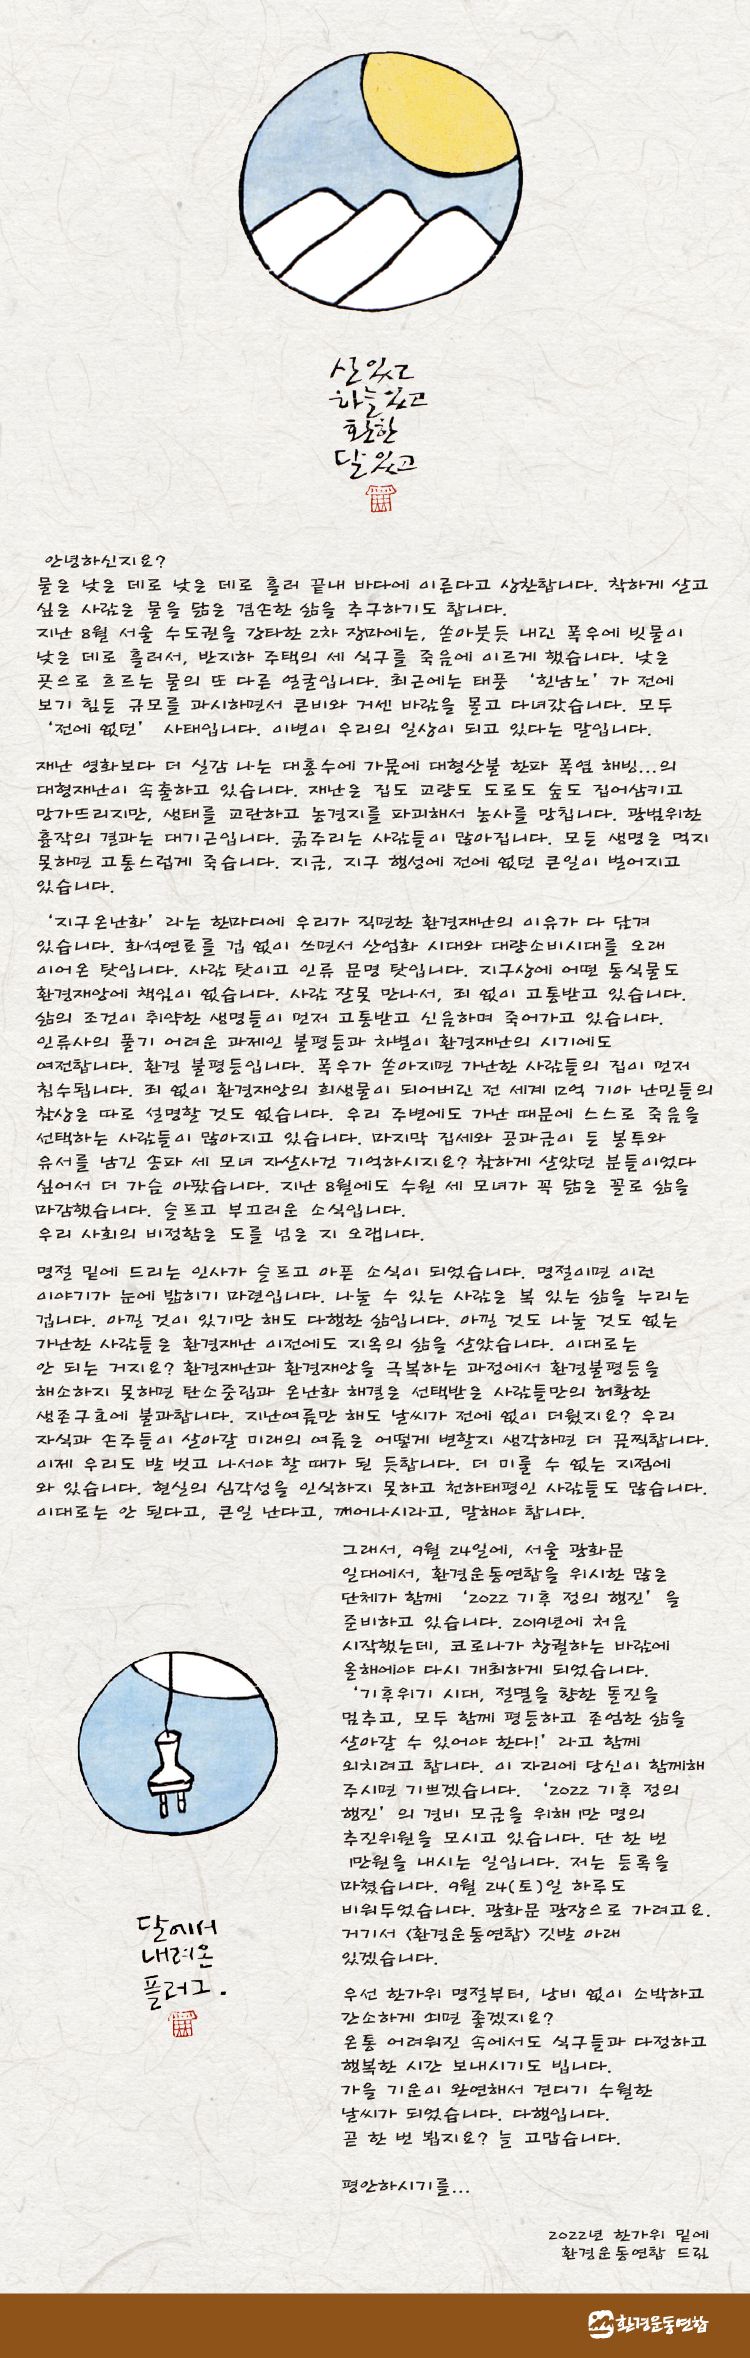 산 있고
하늘 있고
환한
달 있고
안녕하신지요?
물은 낮은 데로 낮은 데로 흘러 끝내 바다에 이른다고 상찬합니다. 착하게 살고
싶은 사람은 물을 닮은 겸손한 삶을 추구하기도 합니다.
지난 8월 서울 수도권을 강타한 2차 장마에는, 쏟아붓듯 내린 폭우에 빗물이
낮은 데로 흘러서, 반지하 주택의 세 식구를 죽음에 이르게 했습니다. 낮은
곳으로 흐르는 물의 또 다른 얼굴입니다. 최근에는 태풍 ‘힌남노’가 전에
보기 힘든 규모를 과시하면서 큰비와 거센 바람을 몰고 다녀갔습니다. 모두
‘전에 없던’ 사태입니다. 이변이 우리의 일상이 되고 있다는 말입니다.
재난 영화보다 더 실감 나는 대홍수에 가뭄에 대형산불 한파 폭염 해빙...의
대형재난이 속출하고 있습니다. 재난은 집도 교량도 도로도 숲도 집어삼키고
망가뜨리지만, 생태를 교란하고 농경지를 파괴해서 농사를 망칩니다. 광범위한
흉작의 결과는 대기근입니다. 굶주리는 사람들이 많아집니다. 모든 생명은 먹지
못하면 고통스럽게 죽습니다. 지금, 지구 행성에 전에 없던 큰일이 벌어지고
있습니다.
‘지구온난화’라는 한마디에 우리가 직면한 환경재난의 이유가 다 담겨
있습니다. 화석연료를 겁 없이 쓰면서 산업화 시대와 대량소비시대를 오래
이어온 탓입니다. 사람 탓이고 인류 문명 탓입니다. 지구상에 어떤 동식물도
환경재앙에 책임이 없습니다. 사람 잘못 만나서, 죄 없이 고통받고 있습니다.
삶의 조건이 취약한 생명들이 먼저 고통받고 신음하며 죽어가고 있습니다.
인류사의 풀기 어려운 과제인 불평등과 차별이 환경재난의 시기에도
여전합니다. 환경 불평등입니다. 폭우가 쏟아지면 가난한 사람들의 집이 먼저
침수됩니다. 죄 없이 환경재앙의 희생물이 되어버린 전 세계 12억 기아 난민들의
참상은 따로 설명할 것도 없습니다. 우리 주변에도 가난 때문에 스스로 죽음을
선택하는 사람들이 많아지고 있습니다. 마지막 집세와 공과금이 든 봉투와
유서를 남긴 송파 세 모녀 자살사건 기억하시지요? 참하게 살았던 분들이었다
싶어서 더 가슴 아팠습니다. 지난 8월에도 수원 세 모녀가 꼭 닮은 꼴로 삶을
마감했습니다. 슬프고 부끄러운 소식입니다.
우리 사회의 비정함은 도를 넘은 지 오랩니다.
명절 밑에 드리는 인사가 슬프고 아픈 소식이 되었습니다. 명절이면 이런
이야기가 눈에 밟히기 마련입니다. 나눌 수 있는 사람은 복 있는 삶을 누리는
겁니다. 아낄 것이 있기만 해도 다행한 삶입니다. 아낄 것도 나눌 것도 없는
가난한 사람들은 환경재난 이전에도 지옥의 삶을 살았습니다. 이대로는
안 되는 거지요? 환경재난과 환경재앙을 극복하는 과정에서 환경불평등을
해소하지 못하면 탄소중립과 온난화 해결은 선택받은 사람들만의 허황한
생존구호에 불과합니다. 지난여름만 해도 날씨가 전에 없이 더웠지요? 우리
자식과 손주들이 살아갈 미래의 여름은 어떻게 변할지 생각하면 더 끔찍합니다.
이제 우리도 발 벗고 나서야 할 때가 된 듯합니다. 더 미룰 수 없는 지점에
와 있습니다. 현실의 심각성을 인식하지 못하고 천하태평인 사람들도 많습니다.
이대로는 안 된다고, 큰일 난다고, 깨어나시라고, 말해야 합니다.
그래서, 9월 24일에, 서울 광화문
일대에서, 환경운동연합을 위시한 많은
단체가 함께 ‘2022 기후 정의 행진’을
준비하고 있습니다. 2019년에 처음
시작했는데, 코로나가 창궐하는 바람에
올해에야 다시 개최하게 되었습니다.
‘기후위기 시대, 절멸을 향한 돌진을
멈추고, 모두 함께 평등하고 존엄한 삶을
살아갈 수 있어야 한다!’라고 함께
외치려고 합니다. 이 자리에 당신이 함께해
주시면 기쁘겠습니다. ‘2022 기후 정의
행진’의 경비 모금을 위해 1만 명의
추진위원을 모시고 있습니다. 단 한 번
1만원을 내시는 일입니다. 저는 등록을
마쳤습니다. 9월 24(토)일 하루도
비워두었습니다. 광화문 광장으로 가려고요.
거기서 <환경운동연합> 깃발 아래
있겠습니다.
달에서
내려온
플러그.
우선 한가위 명절부터, 낭비 없이 소박하고
간소하게 쇠면 좋겠지요?
온통 어려워진 속에서도 식구들과 다정하고
행복한 시간 보내시기도 빕니다.
가을 기운이 완연해서 견디기 수월한
날씨가 되었습니다. 다행입니다.
곧 한 번 뵙지요? 늘 고맙습니다.
평안하시기를...
2022년 한가위 밑에
환경운동연합 드림
환경운동연합